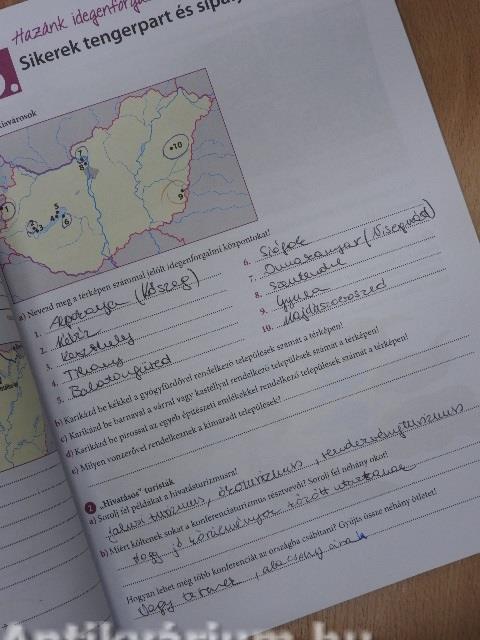 Hazánk idegenforga
Sikerek tengerpart és sípály
kisvárosok
1
7
8
10
9
5
4
3
6
a) Nevezd meg a térképen számmal jelölt idegenforgalmi központokat!
1. Apátistvánfalva (Kőszeg)
2. Hévíz
3. Keszthely
4. Tihany
5. Balatonfüred
6. Siófok
7. Dunakanyar (Visegrád)
8. Szentendre
9. Gyula
10. Hajdúszoboszló
b) Karikázd be kékkel a gyógyfürdővel rendelkező települések számát a térképen!
c) Karikázd be barnával a várral vagy kastéllyal rendelkező települések számát a térképen!
d) Karikázd be pirossal az egyéb építészeti emlékekkel rendelkező települések számát a térképen!
e) Milyen vonzerővel rendelkeznek a kimaradt települések?
2 „Hivatásos” turisták
a) Sorolj fel példákat a hivatásturizmusra!
falusi turizmus, ökoturizmus, rendezvényturizmus
b) Miért költenek sokat a konferenciaturizmus résztvevői? Sorolj fel néhány okot!
Hogy jó körülmények között utazzanak
Hogyan lehet még több konferenciát az országba csábítani? Gyűjts össze néhány ötletet!
Nagy termek, alacsony árak
Antikvárium.hu